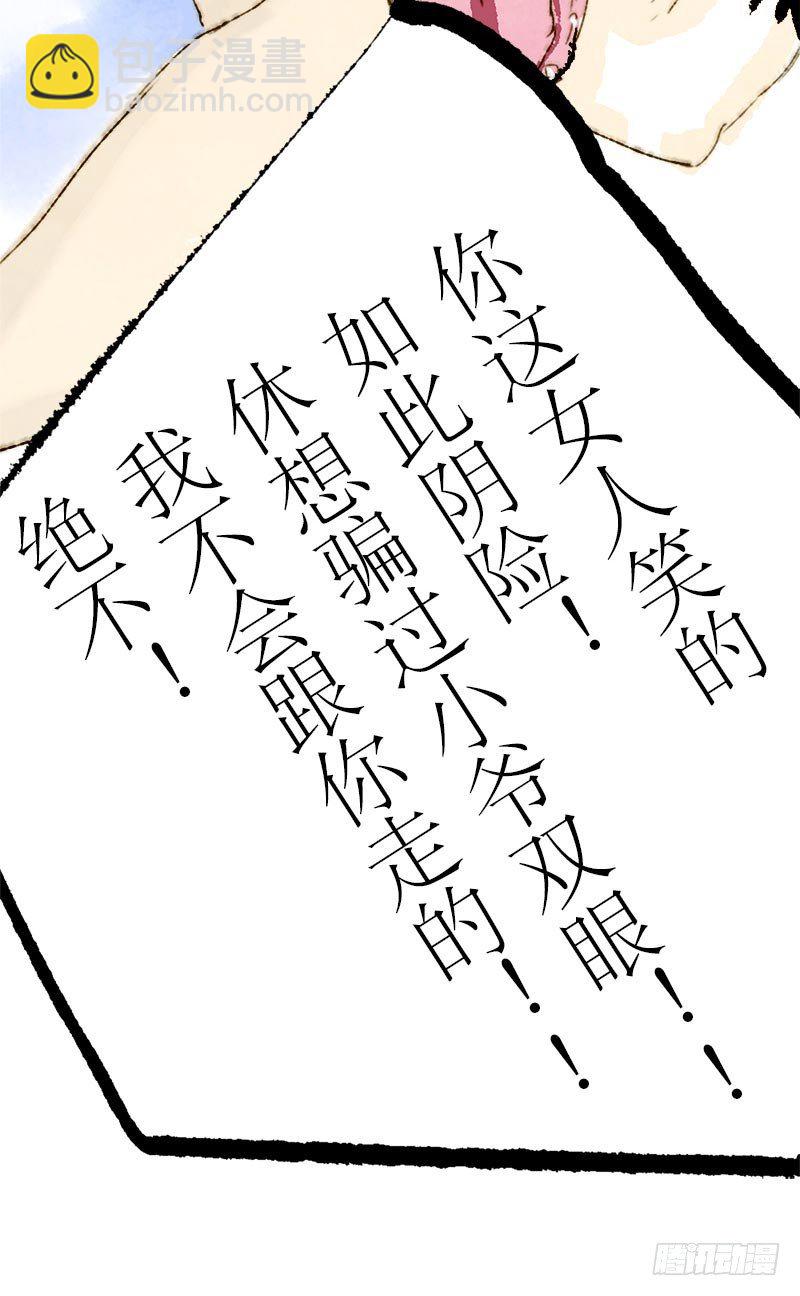 包子漫畫
baozimh.com
你这女人笑的
如此阴险!
休想骗过小爷双眼!!
我不会跟你走的!!
绝不!
腾讯动漫